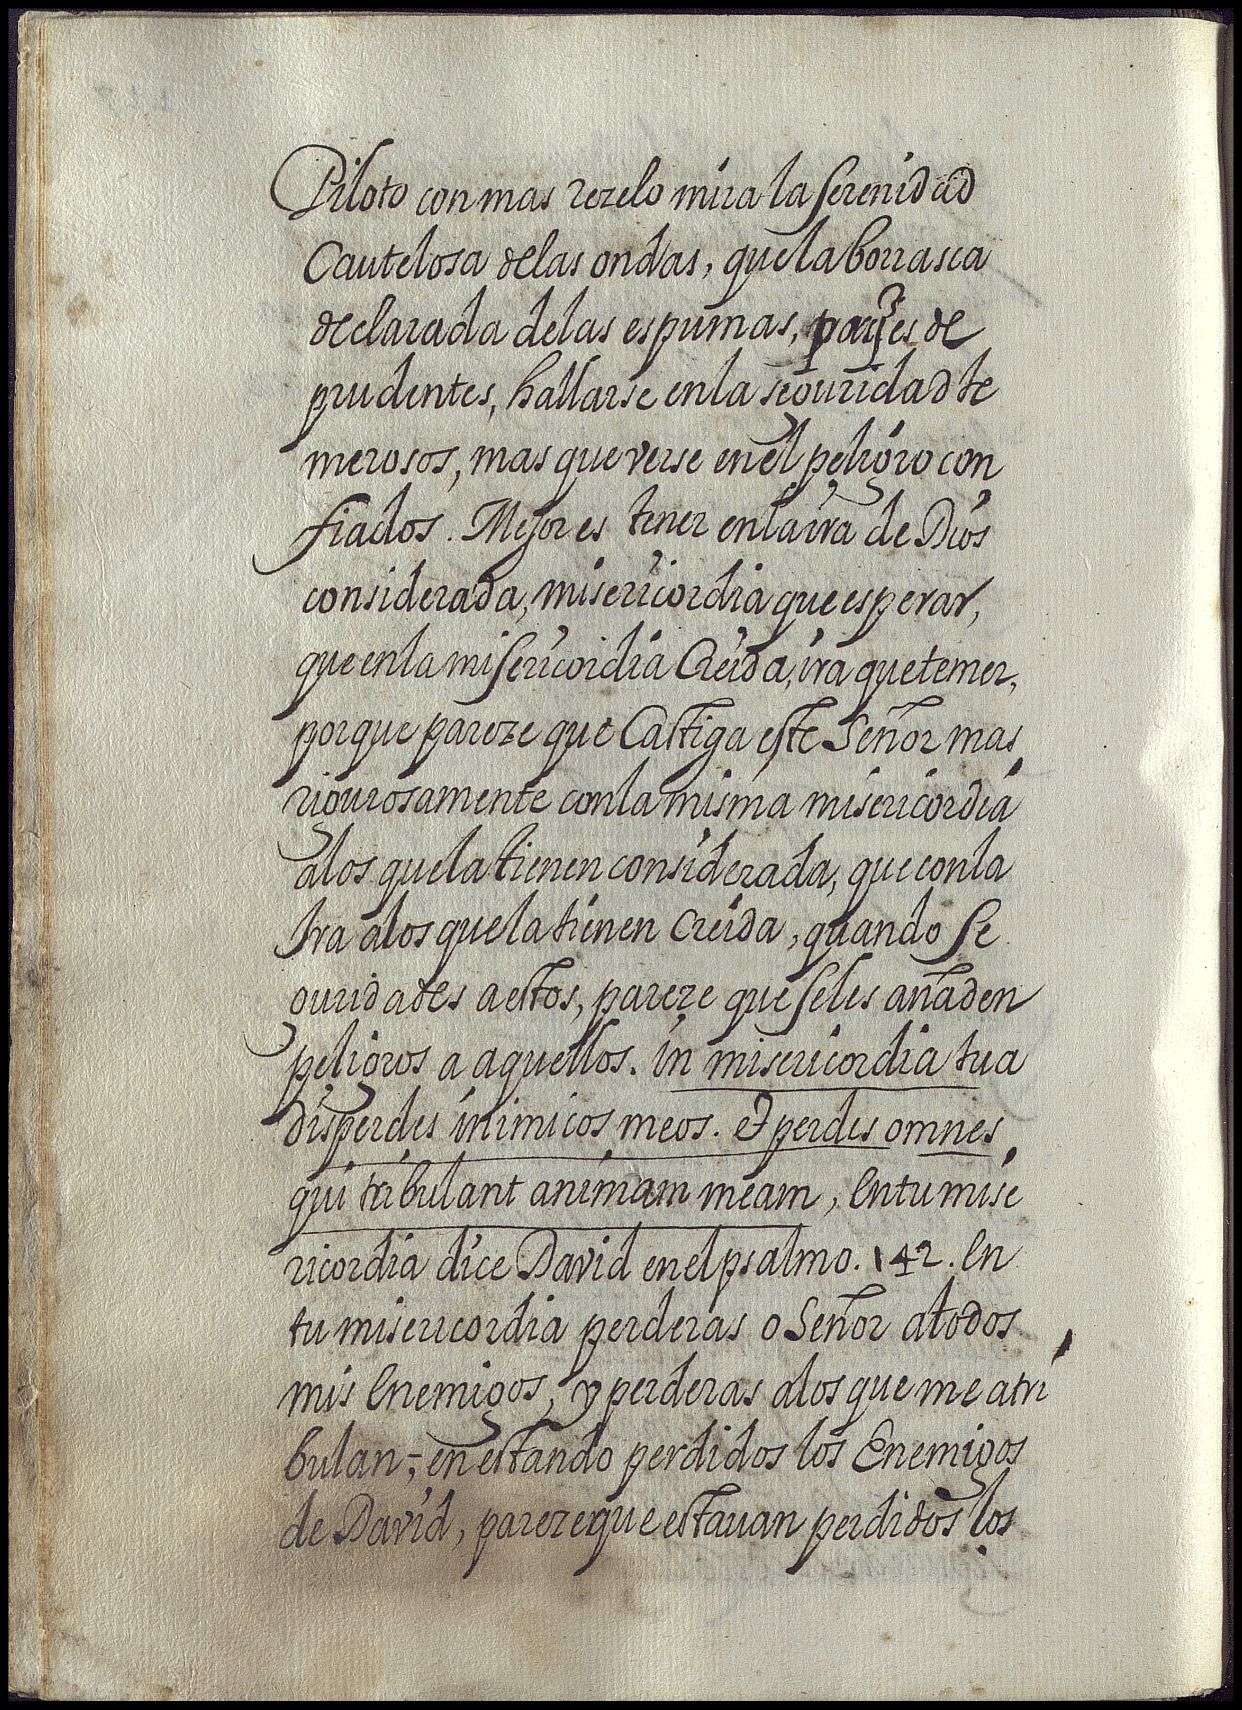 Piloto con mas rezelo mira la serenidad
Cautelosa delas ondas, que la borrasca
declarada delas espumas, porq̃ es de
prudentes, hallarse enla seguridad te
merosos, mas que verse en el peligro con
fiados. Mejor es tener enla ira de Dios
considerada, misericordia que esperar,
que enla misericordia Creida, ira que temer,
porque pareze que Castiga este Señor mas
rigurosamente conla misma misericordia
alos que la tienen considerada, que conla
Ira alos que la tienen creida, quando se
guridades a estos, pareze que seles añaden
peligros a aquellos. in misericordia tua
disperdes inimicos meos. et perdes omnes
qui tribulant animam meam, En tu mise
ricordia dice David enel psalmo. 142. En
tu misericordia perderas o Señor a todos
mis Enemigos, y perderas alos que me atri
bulan; en estando perdidos los Enemigos
de David, pareze que estauan perdidos los